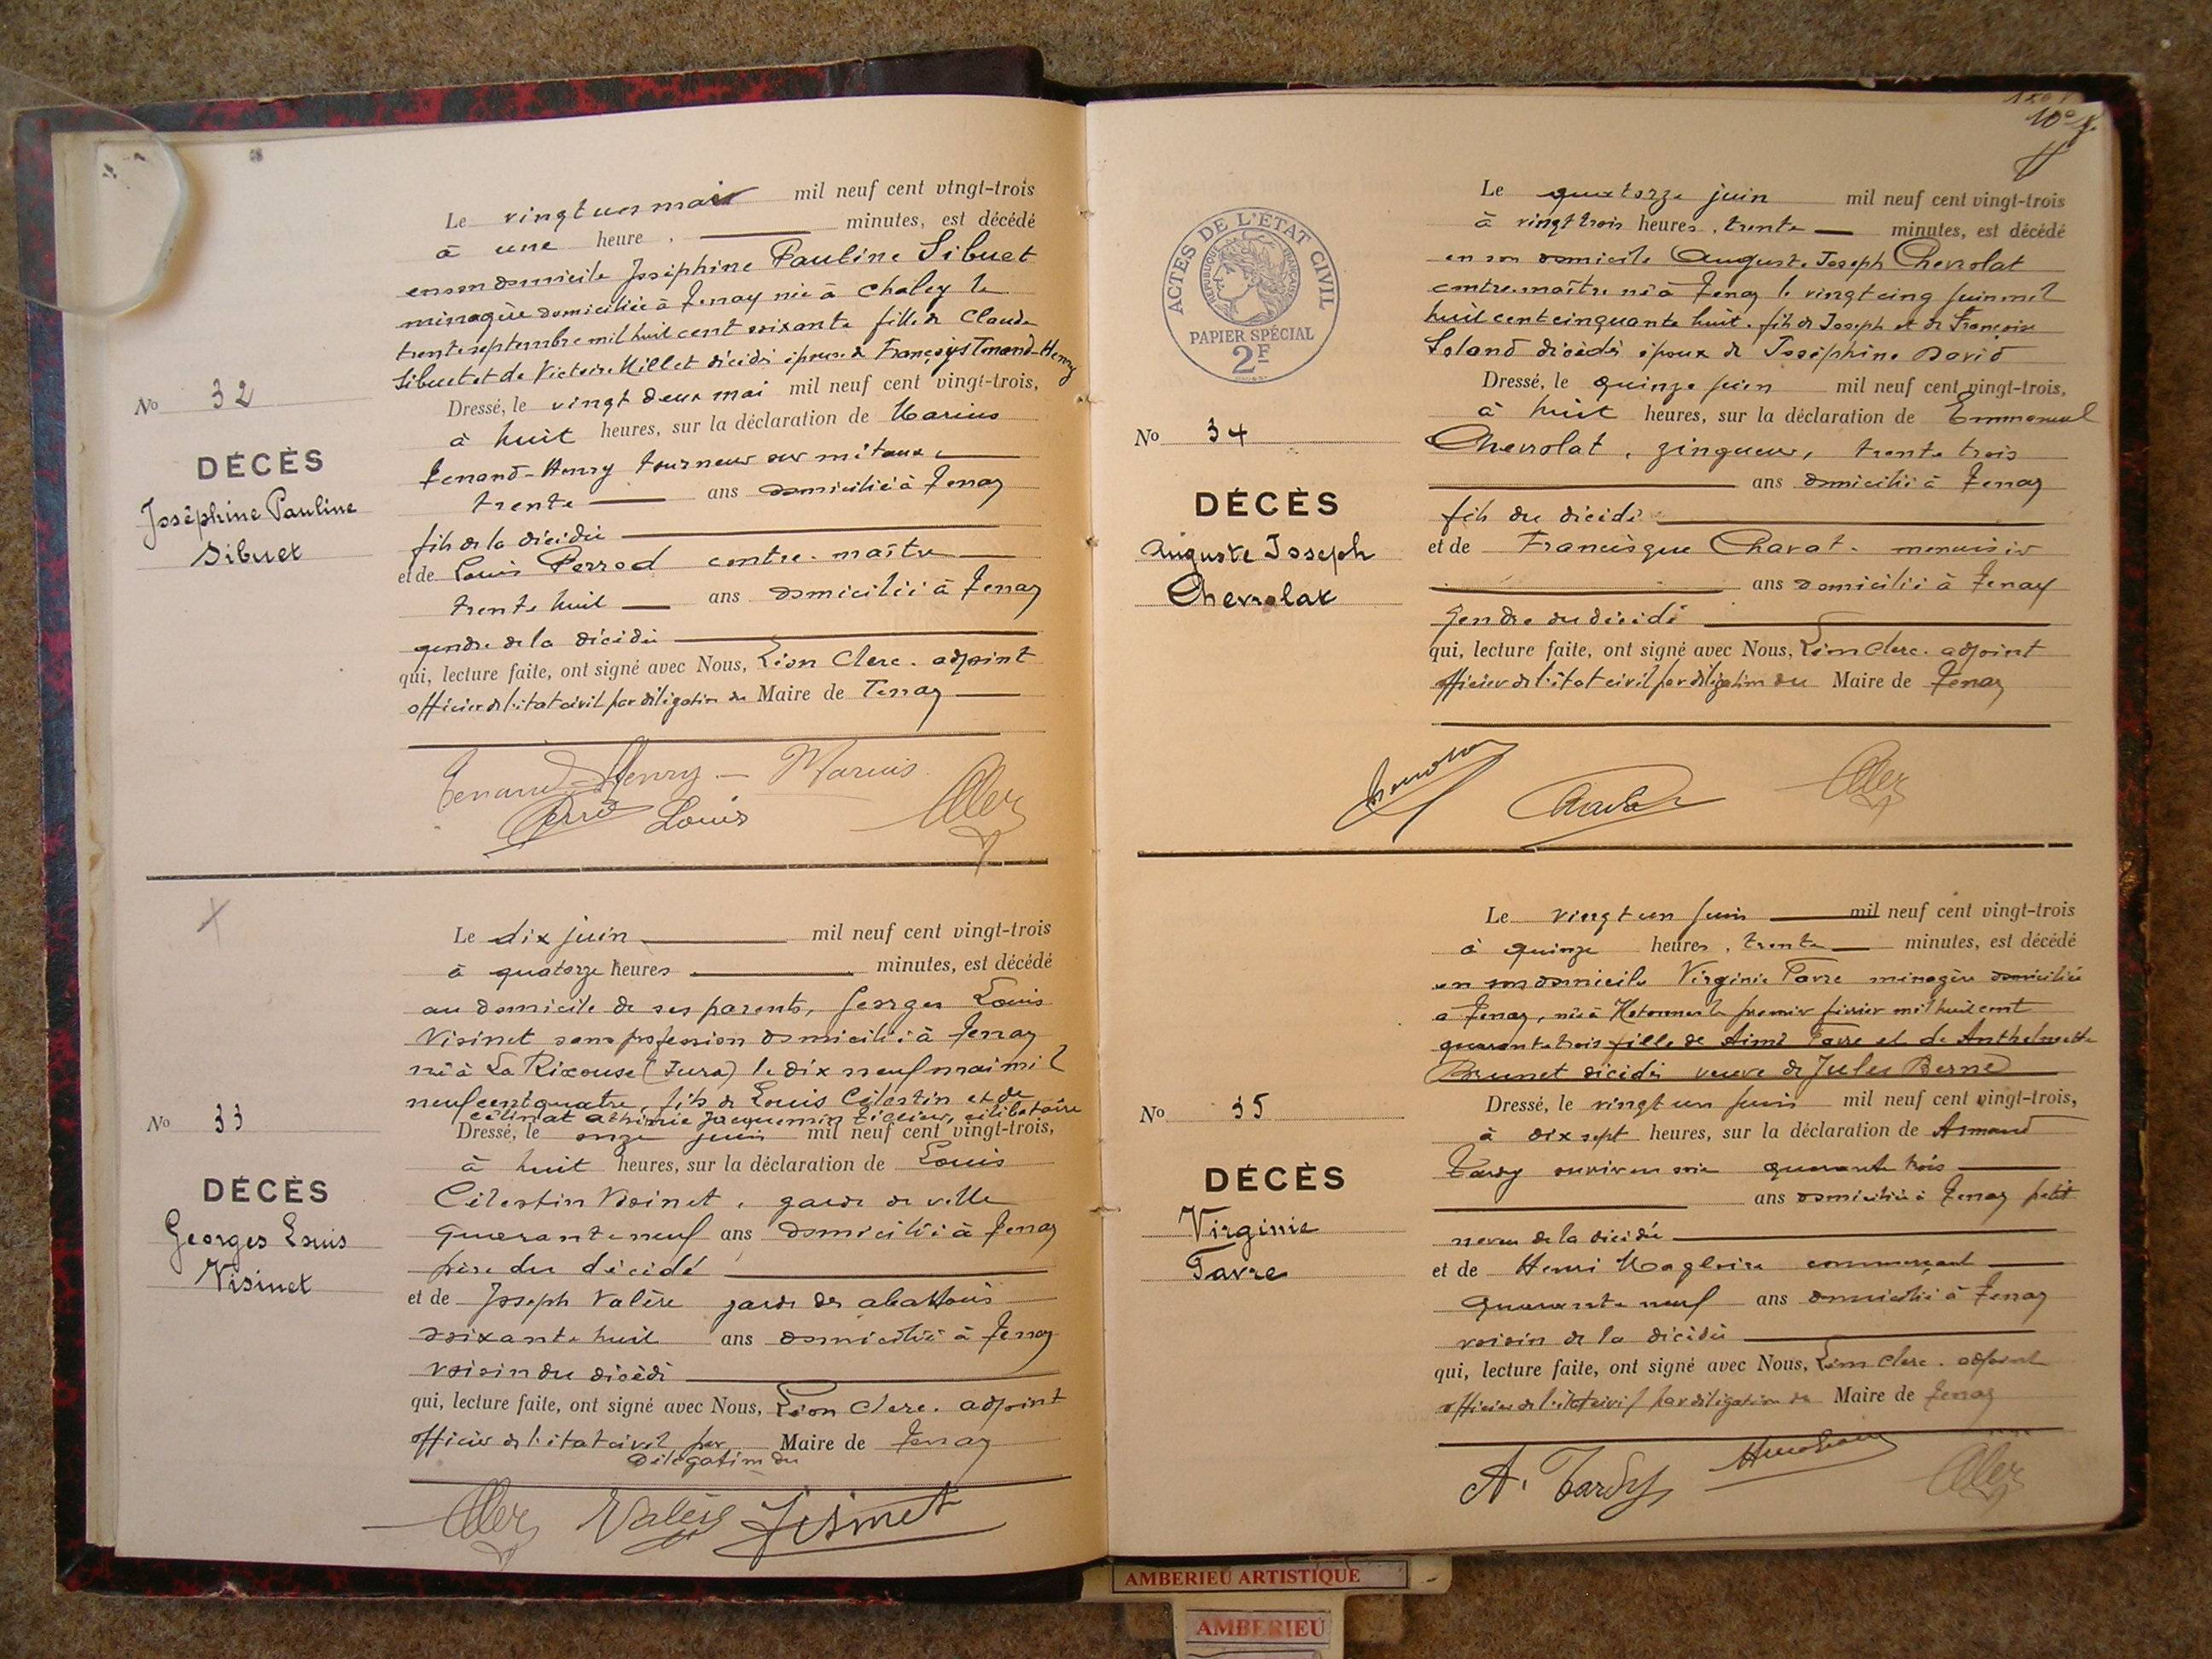 Le vingt un mai mil neuf cent vingt-trois
à une heure minutes, est décédé
en son domicile Joséphine Pauline Sibuet
ménagère domiciliée à Tenay née à Chaley le
trente septembre mil huit cent soixante fille de Claude
Sibuet et de Victoire Millet décédés épouse de François Tenand-Henry
No 32
DÉCÈS
Joséphine Pauline
Sibuet
Dressé, le vingt deux mai mil neuf cent vingt-trois,
à huit heures, sur la déclaration de Marius
Tenand-Henry tourneur sur métaux
trente ans domicilié à Tenay
fils de la décédée
et de Louis Perrod contre-maître
trente huit ans domicilié à Tenay
gendre de la décédée
qui, lecture faite, ont signé avec Nous, Léon Clerc. adjoint
officier de l'état civil par délégation du Maire de Tenay
Tenand-Henry - Marius
Louis
Le dix juin mil neuf cent vingt-trois
à quatorze heures minutes, est décédé
au domicile de ses parents, Georges Louis
Visinet sans profession domicilié à Tenay
né à La Rixouse (Jura) le dix neuf mai mil
neuf cent quatre, fils de Louis Célestin et de
Jacquemin célibataire
No 33
DÉCÈS
Georges Louis
Visinet
Dressé, le onze juin mil neuf cent vingt-trois,
à huit heures, sur la déclaration de Louis
Célestin Visinet, garde de ville
quarante neuf ans domicilié à Tenay
père du décédé
et de Joseph Valère garde des abattoirs
soixante huit ans domicilié à Tenay
voisin du décédé
qui, lecture faite, ont signé avec Nous, Léon Clerc. adjoint
officier de l'état civil par Maire de Tenay
délégation du
Valère Visinet
10e f.
ACTES DE L'ETAT CIVIL
REPUBLIQUE FRANÇAISE
PAPIER SPÉCIAL
2F
Le quatorze juin mil neuf cent vingt-trois
à vingt trois heures, trente minutes, est décédé
en son domicile Auguste Joseph Chevrolat
contre-maître né à Tenay le vingt cinq juin mil
huit cent cinquante huit. fils de Joseph et de Françoise
décédés époux de Joséphine David
No 34
DÉCÈS
Auguste Joseph
Chevrolat
Dressé, le quinze juin mil neuf cent vingt-trois,
à huit heures, sur la déclaration de Emmanuel
Chevrolat, zingueur, trente trois
ans domicilié à Tenay
fils du décédé
et de Francisque Charat. menuisier
ans domicilié à Tenay
gendre du décédé
qui, lecture faite, ont signé avec Nous, Léon Clerc. adjoint
officier de l'état civil par délégation du Maire de Tenay
Le vingt un juin mil neuf cent vingt-trois
à quinze heures, trente minutes, est décédé
en son domicile Virginie Favre ménagère domiciliée
à Tenay, née à Hotonnes le premier février mil huit cent
quarante trois fille de Aimé Favre et de Anthelmette
Brunet décédés veuve de Jules Berne
No 35
DÉCÈS
Virginie
Favre
Dressé, le vingt un juin mil neuf cent vingt-trois,
à dix sept heures, sur la déclaration de Armand
Tardy ouvrier en soie quarante trois
ans domicilié à Tenay petit
neveu de la décédée
et de Henri Magloire commerçant
quarante neuf ans domicilié à Tenay
voisin de la décédée
qui, lecture faite, ont signé avec Nous, Léon Clerc. adjoint
officier de l'état civil par délégation du Maire de Tenay
A. Tardy
AMBERIEU ARTISTIQUE
AMBERIEU